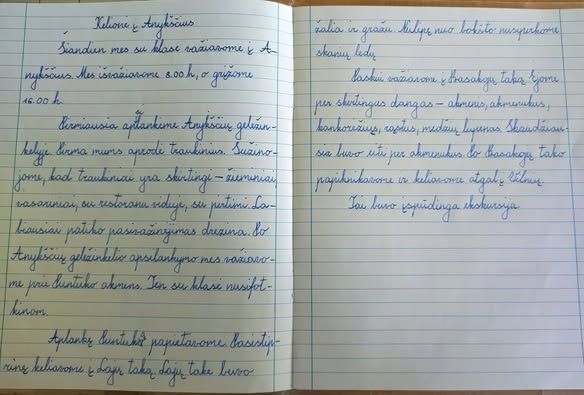 Kelionė į Anykščius
Šiandien mes su klase važiavome į A-
nykščius. Mes išvažiavome 8.00 h, o grįžome
16.00 h.
Pirmiausia aplankėme Anykščių geležin-
kelyje. Pirma mums aprodė traukinius. Sužino-
jome, kad traukiniai yra skirtingi – žieminiai,
vasariniai, su restoranu viduje, su pirtimi. La-
biausiai patiko pasivažinėjimas drezina. Po
Anykščių geležinkelio apsilankymo mes važiavo-
me prie Puntuko akmens. Ten su klase nusifot-
kinom.
Aplankę Puntuką papietavome. Pasistip-
rinę keliavome į Lajų taką. Lajų take buvo
žalia ir gražu. Nulipę nuo bokšto nusipirkome
skanių ledų.
Paskui važiavome į Basakojų taką. Ėjome
per skirtingas dangas – akmenis, akmenukus,
kankorėžius, rąstus, medžių lupenas. Skaudžiau-
sia buvo eiti per akmenukus. Po Basakojų tako
papiknikavome ir keliavome atgal į Vilnių.
Tai buvo įspūdinga ekskursija.